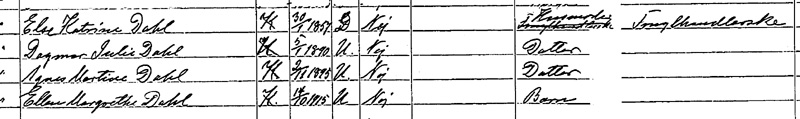 " Else Katrine Dahl K. 30/1 1857 E Nej Husmoder Smørhandlerske
" Dagmar Julie Dahl K. 5/1 1890 U. Nej Datter
" Agnes Martine Dahl K 2/1 1893 U. Nej Datter
" Ellen Margrethe Dahl K. 1915 U Nej Barn